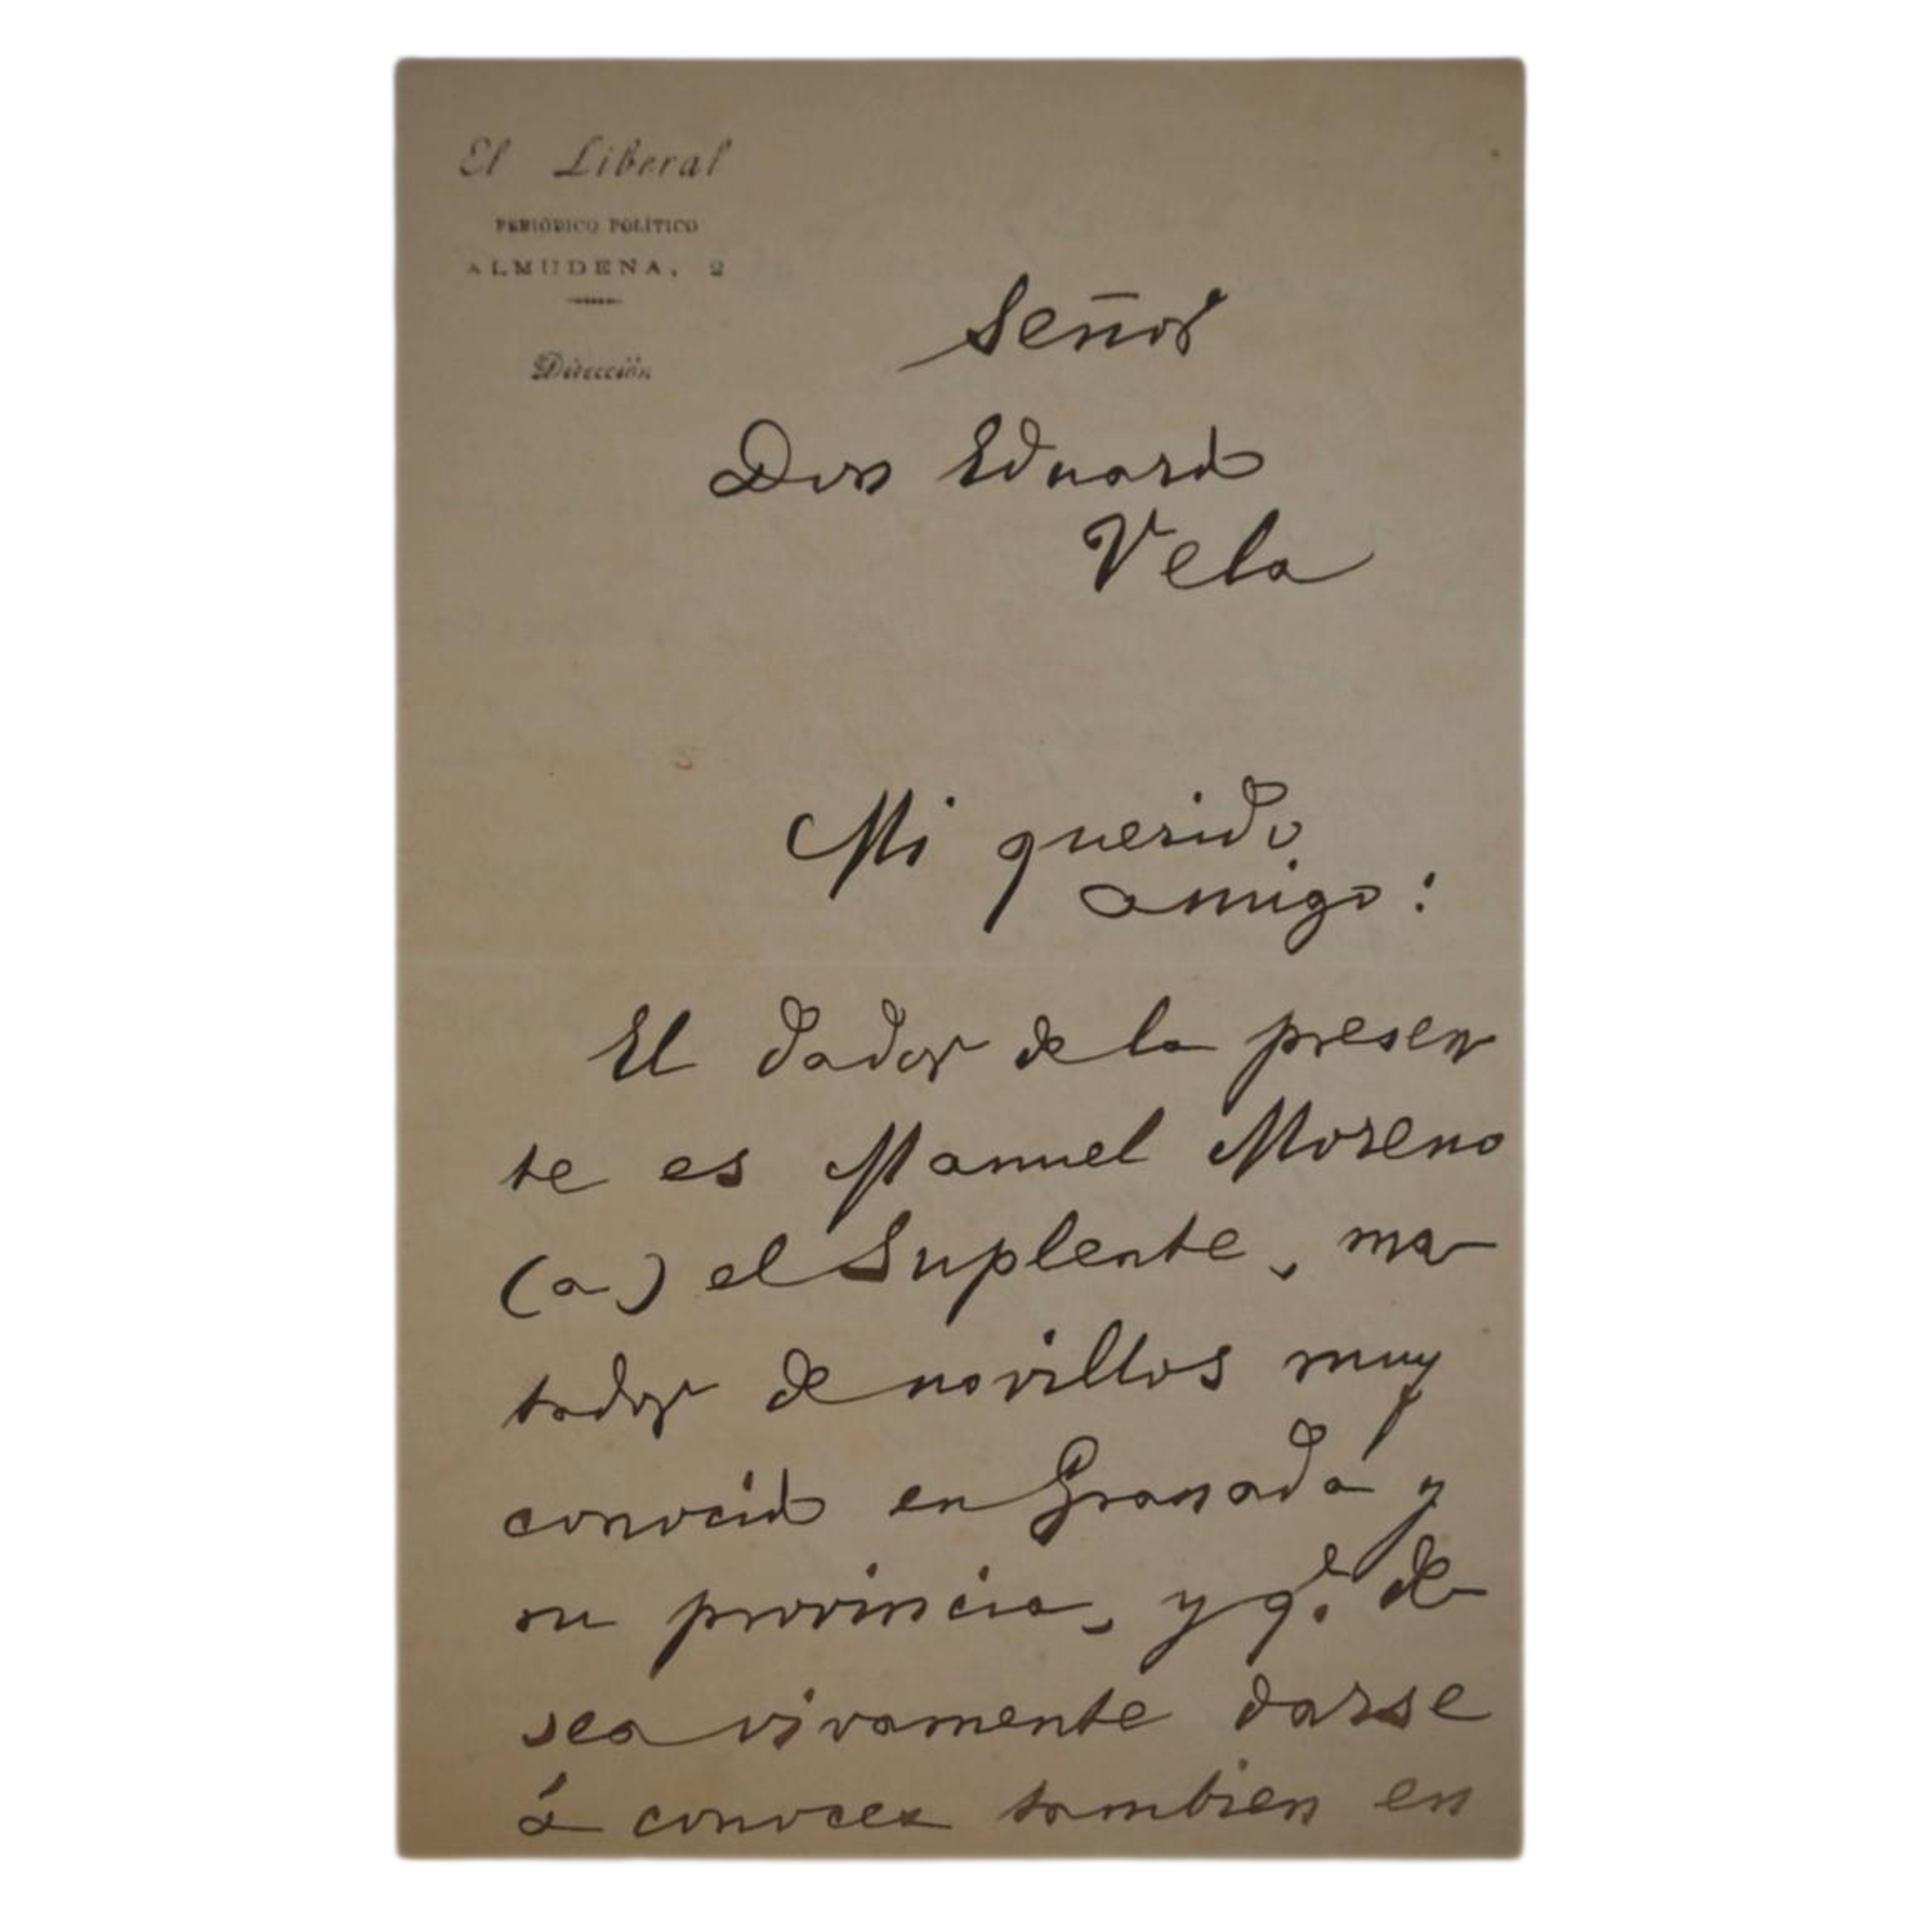 El Liberal
PERIÓDICO POLÍTICO
ALMUDENA, 2
Dirección
Señor
Don Eduardo
Vela
Mi querido
amigo:
El dador de la presen
te es Manuel Moreno
(a) el Suplente, ma-
tador de novillos muy
conocido en Granada y
su provincia, y qe. de-
sea vivamente darse
á conocer tambien en